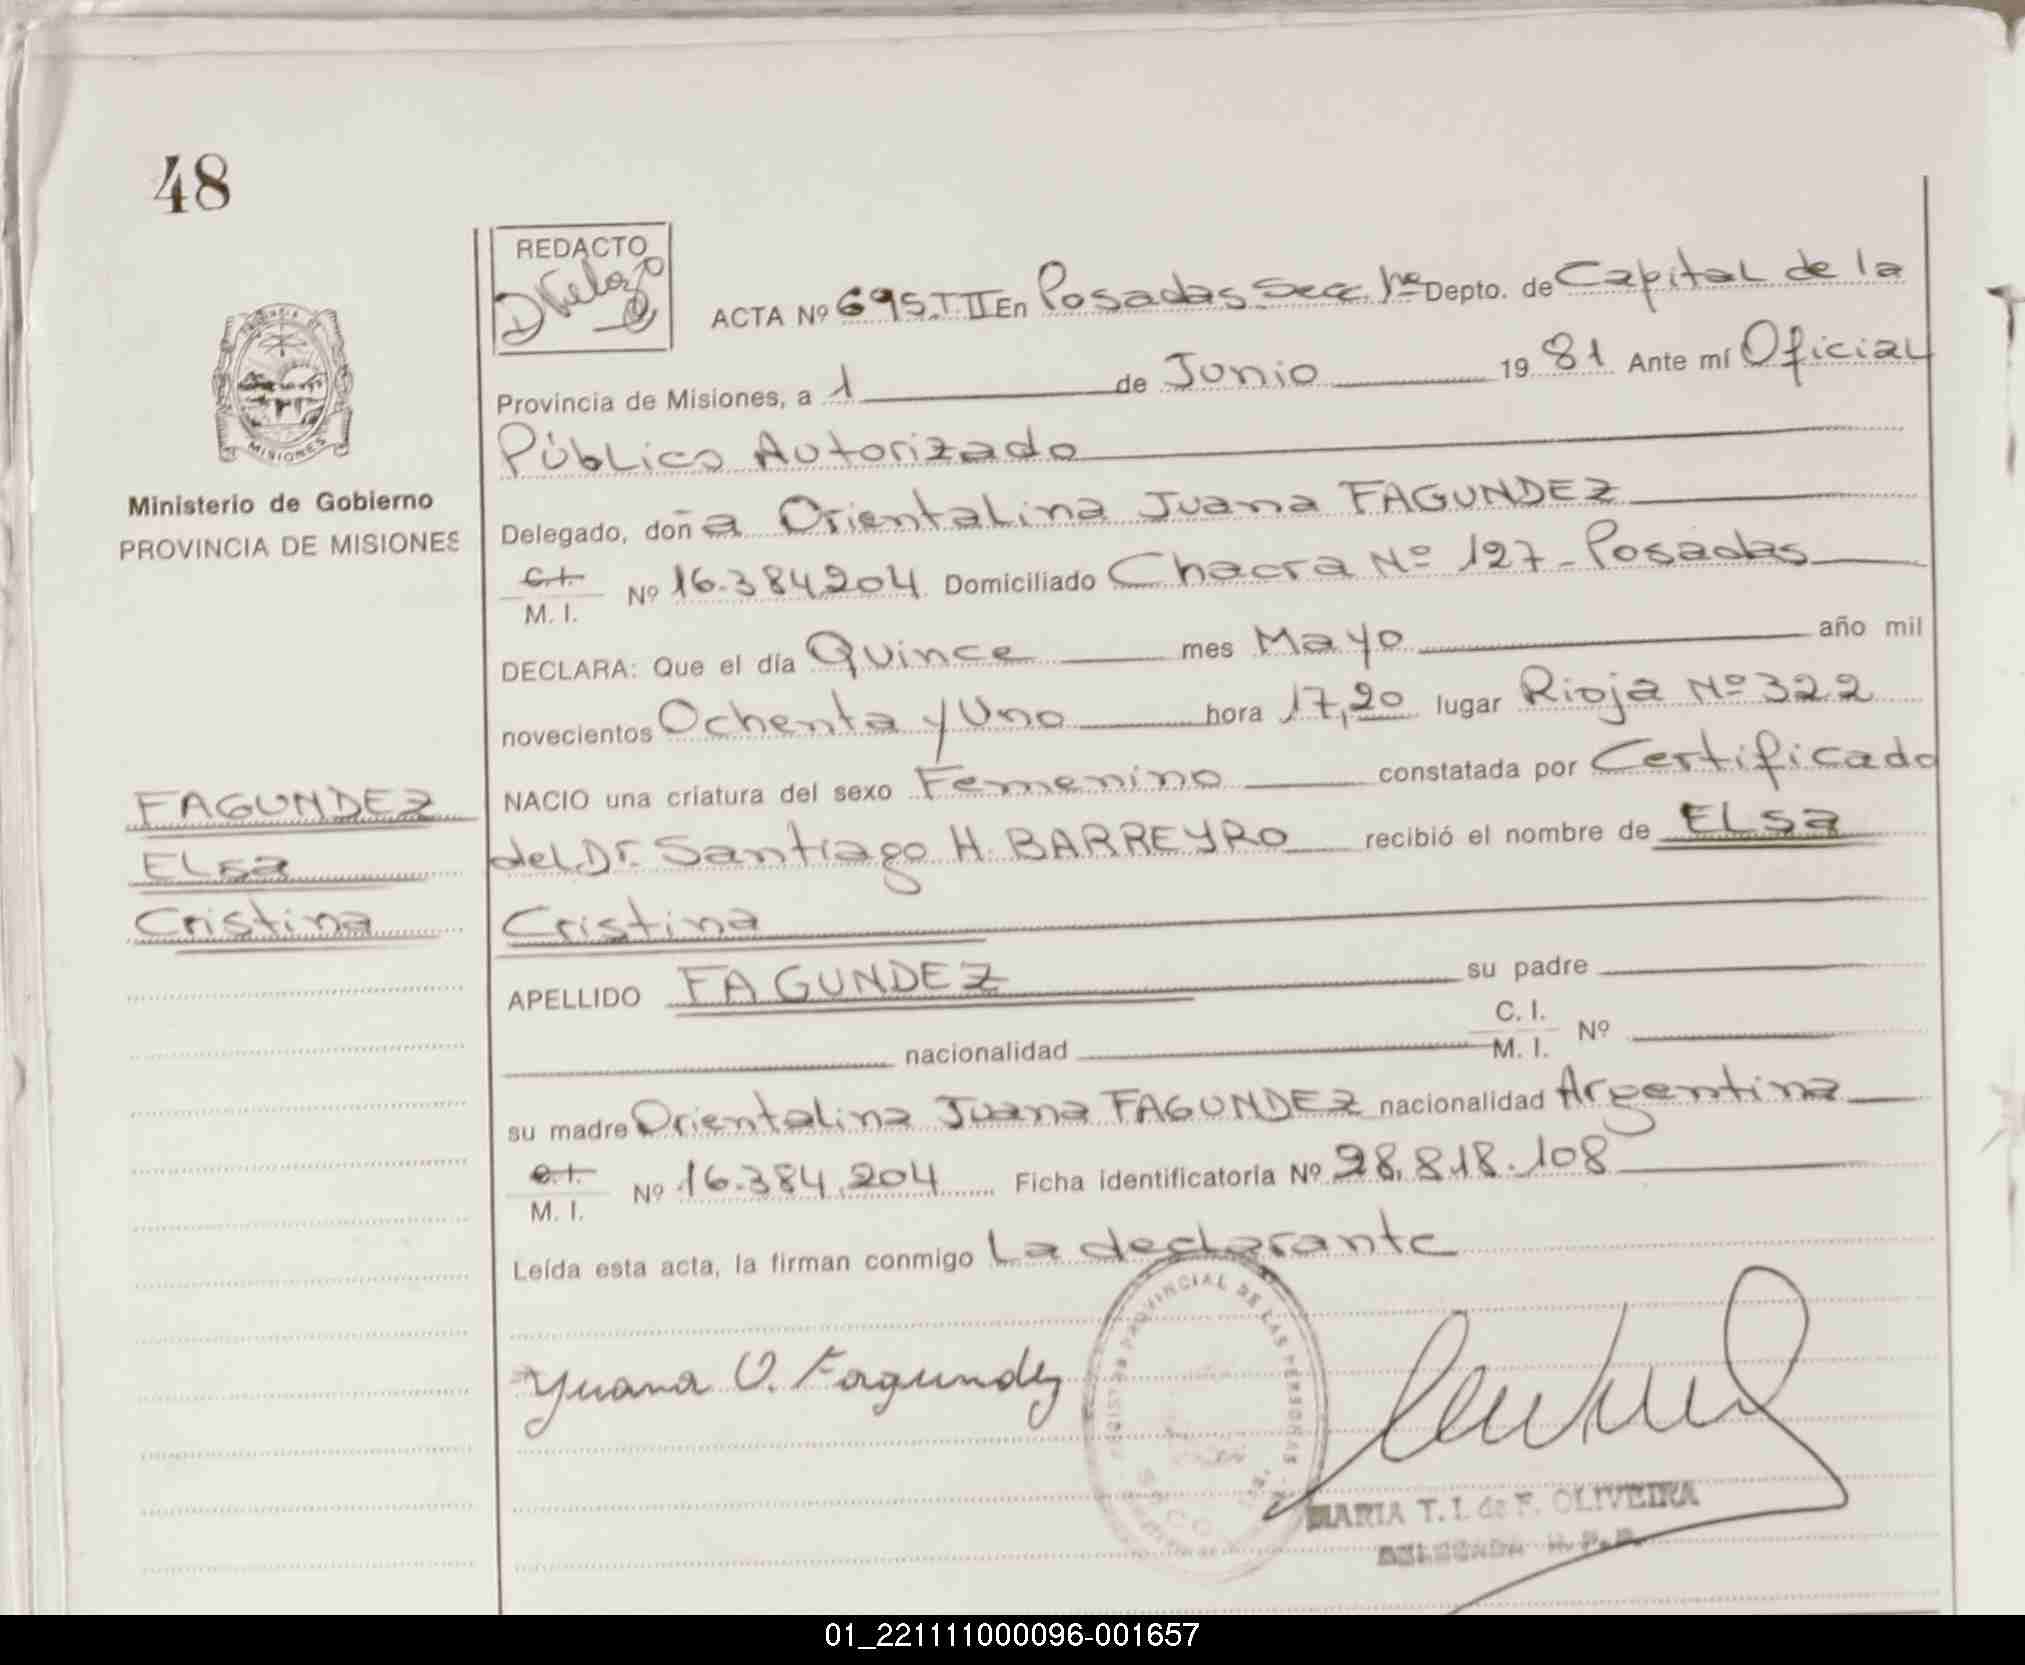 48
REDACTO
ACTA Nº 695.T.II En Posadas Secc. 1ra Depto. de Capital de la
Provincia de Misiones, a 1 de Junio 19 81 Ante mí Oficial
Público Autorizado
MISIONES
Ministerio de Gobierno
PROVINCIA DE MISIONES
Delegado, doña Orientalina Juana FAGUNDEZ
C.I. M. I. Nº 16.384.204 Domiciliado Chacra Nº 127 - Posadas
DECLARA: Que el día Quince mes Mayo año mil
novecientos Ochenta y Uno hora 17,20 lugar Rioja Nº 322
NACIO una criatura del sexo Femenino constatada por Certificado
del Dr. Santiago H. BARREYRO recibió el nombre de ELsa
Cristina
FAGUNDEZ
ELsa
Cristina
APELLIDO FAGUNDEZ su padre
nacionalidad C. I. M. I. Nº
su madre Orientalina Juana FAGUNDEZ nacionalidad Argentina
C.I. M. I. Nº 16.384.204 Ficha identificatoria Nº 28.818.108
Leída esta acta, la firman conmigo La declarante
Yuana O. Fagundez
PROVINCIAL DE LAS PERSONAS
MARIA T. I. de F. OLIVEIRA
DELEGADA R. P. P.
01_221111000096-001657